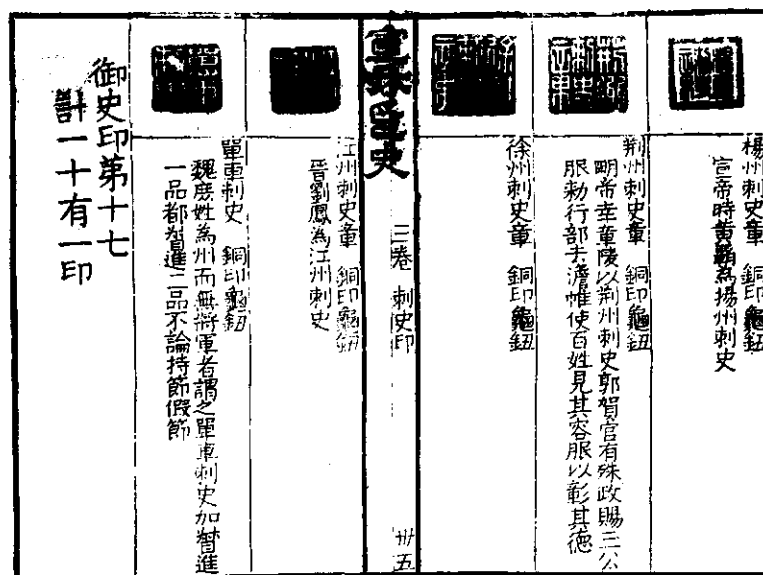 楊州刺史章　銅印龜鈕
宣帝時黄霸為揚州刺史
荆州刺史章　銅印龜鈕
明帝幸章陵以荆州刺史郭賀官有殊政賜三公
服勑行部去襜帷使百姓見其容服以彰其德
徐州刺史章　銅印龜鈕
三卷　刺史印
卅五
江州刺史章　銅印龜鈕
晉劉鳳為江州刺史
單車刺史　銅印龜鈕
魏庶姓為州而無將軍者謂之單車刺史加督進
一品都督進二品不論持節假節
御史印第十七
計一十有一印